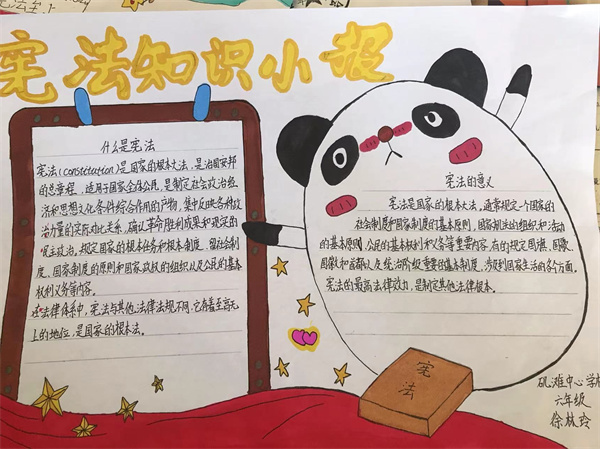 宪法知识小报
什么是宪法
宪法(constitution)是国家的根本大法，是治国安邦
的总章程，适用于国家全体公民，是制定社会政治经
济和思想文化条件综合作用的产物，集中反映各种政
治力量的实际对比关系，确认革命胜利成果和现实的
民主政治，规定国家的根本任务和根本制度，即社会制
度、国家制度的原则和国家政权的组织以及公民的基本
权利义务等内容。
法律体系中，宪法与其他法律法规不同，它有着至高无
上的地位，是国家的根本法。
宪法的意义
宪法是国家的根本大法。通常规定一个国家的
社会制度和国家制度的基本原则，国家机关的组织和活动
的基本原则，公民的基本权利和义务等重要内容，有的规定国旗、国歌
国徽和首都以及统治阶级重要的基本制度，涉及到国家生活的各个方面。
宪法的最高法律效力，是制定其他法律根本。
宪
法
矶滩中心学校
六年级
徐林玲